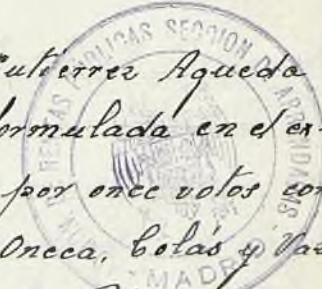 Gutierrez Agueda
formulada en el ex-
por once votos con
Oneca, Colás y Vaz
RENTAS PUBLICAS SECCION DE ARRENDAMS
MADRID